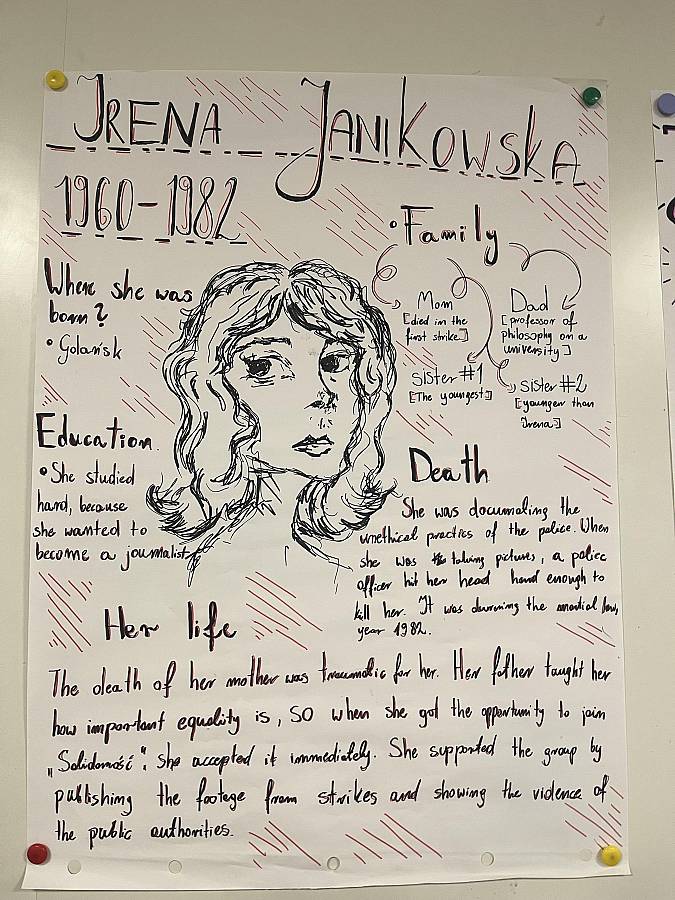 IRENA JANIKOWSKA
1960-1982
Where she was
born?
• Gdańsk
• Family
Mom
[died in the
first strike]
Dad
[professor of
philosophy on a
university]
sister #1
[The youngest]
sister #2
[younger than
Irena]
Education
• She studied
hard, because
she wanted to
become a journalist
Death
She was documating the
unethical practics of the police. When
she was taking pictures, a police
officer hit her head hard enough to
kill her. It was durning the martial law,
year 1982.
Her life
The death of her mother was traumatic for her. Her father taught her
how important equality is, SO when she got the opportunity to join
„Solidarność", she accepted it immediately. She supported the group by
publishing the footage from strikes and showing the violence of
the public authorities.